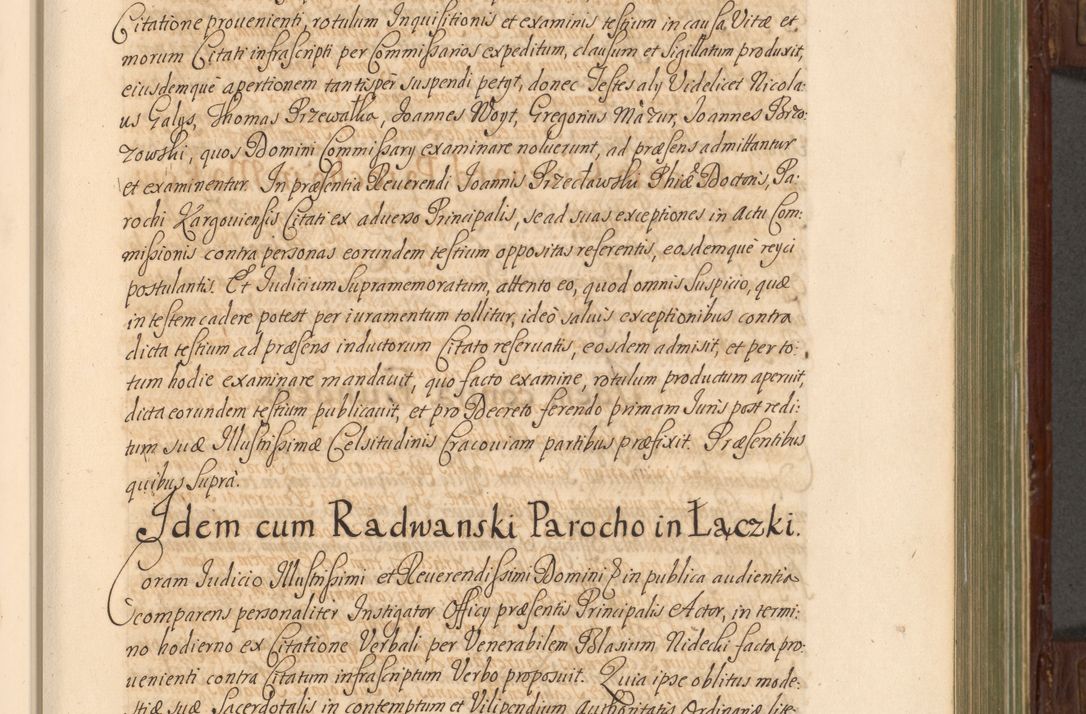 Citatione prouenienti, rotulum Inquisitionis et examinis testium in causa Vitæ et
morum Citati infrascripti per Commissarios expeditum, clausum et Sigillatum produxit,
eiusdemque apertionem tantisper suspendi petyt, donec Testes aly Videlicet Nicola-
us Galys, Thomas Przewałka, Joannes Woyt, Gregorius Mazur, Joannes Brzo-
zowski, quos Domini Commissary examinare noluerunt, ad præsens admittantur
et examinentur. In præsentia Reuerendi Joannis Przecławski Phiæ Doctoris, Pa-
rochi Kargouiensis Citati ex aduerso Principalis, se ad suas exceptiones in Actu Com-
missionis contra personas eorundem testium oppositas referentis, eosdemque reyci
postulantis. Et Judicium Supramemoratum, attento eo, quod omnis Suspicio, quæ
in testem cadere potest per iuramentum tollitur, ideò saluis exceptionibus contra
dicta testium ad præsens inductorum Citato reseruatis, eosdem admisit, et per to-
tum hodie examinare mandauit, quo facto examine, rotulum productum aperuit,
dicta eorundem testium publicauit, et pro Decreto ferendo primam Juris post redi-
tum suæ Illustrissimæ Celsitudinis Cracouiam partibus præfixit. Præsentibus
quibus Suprà.
Idem cum Radwanski Parocho in Łączki.
Coram Judicio Illustrissimi et Reuerendissimi Domini & in publica audientia
comparens personaliter Instigator Officy præsentis Principalis Actor, in termi-
no hodierno ex Citatione Verbali per Venerabilem Blasium Nidecki facta pro-
uenienti contra Citatum infrascriptum Verbo proposuit. Quia ipse oblitus mode-
stiæ suæ Sacerdotalis in contemptum et Vilipendium Authoritatis Ordinariæ lite-